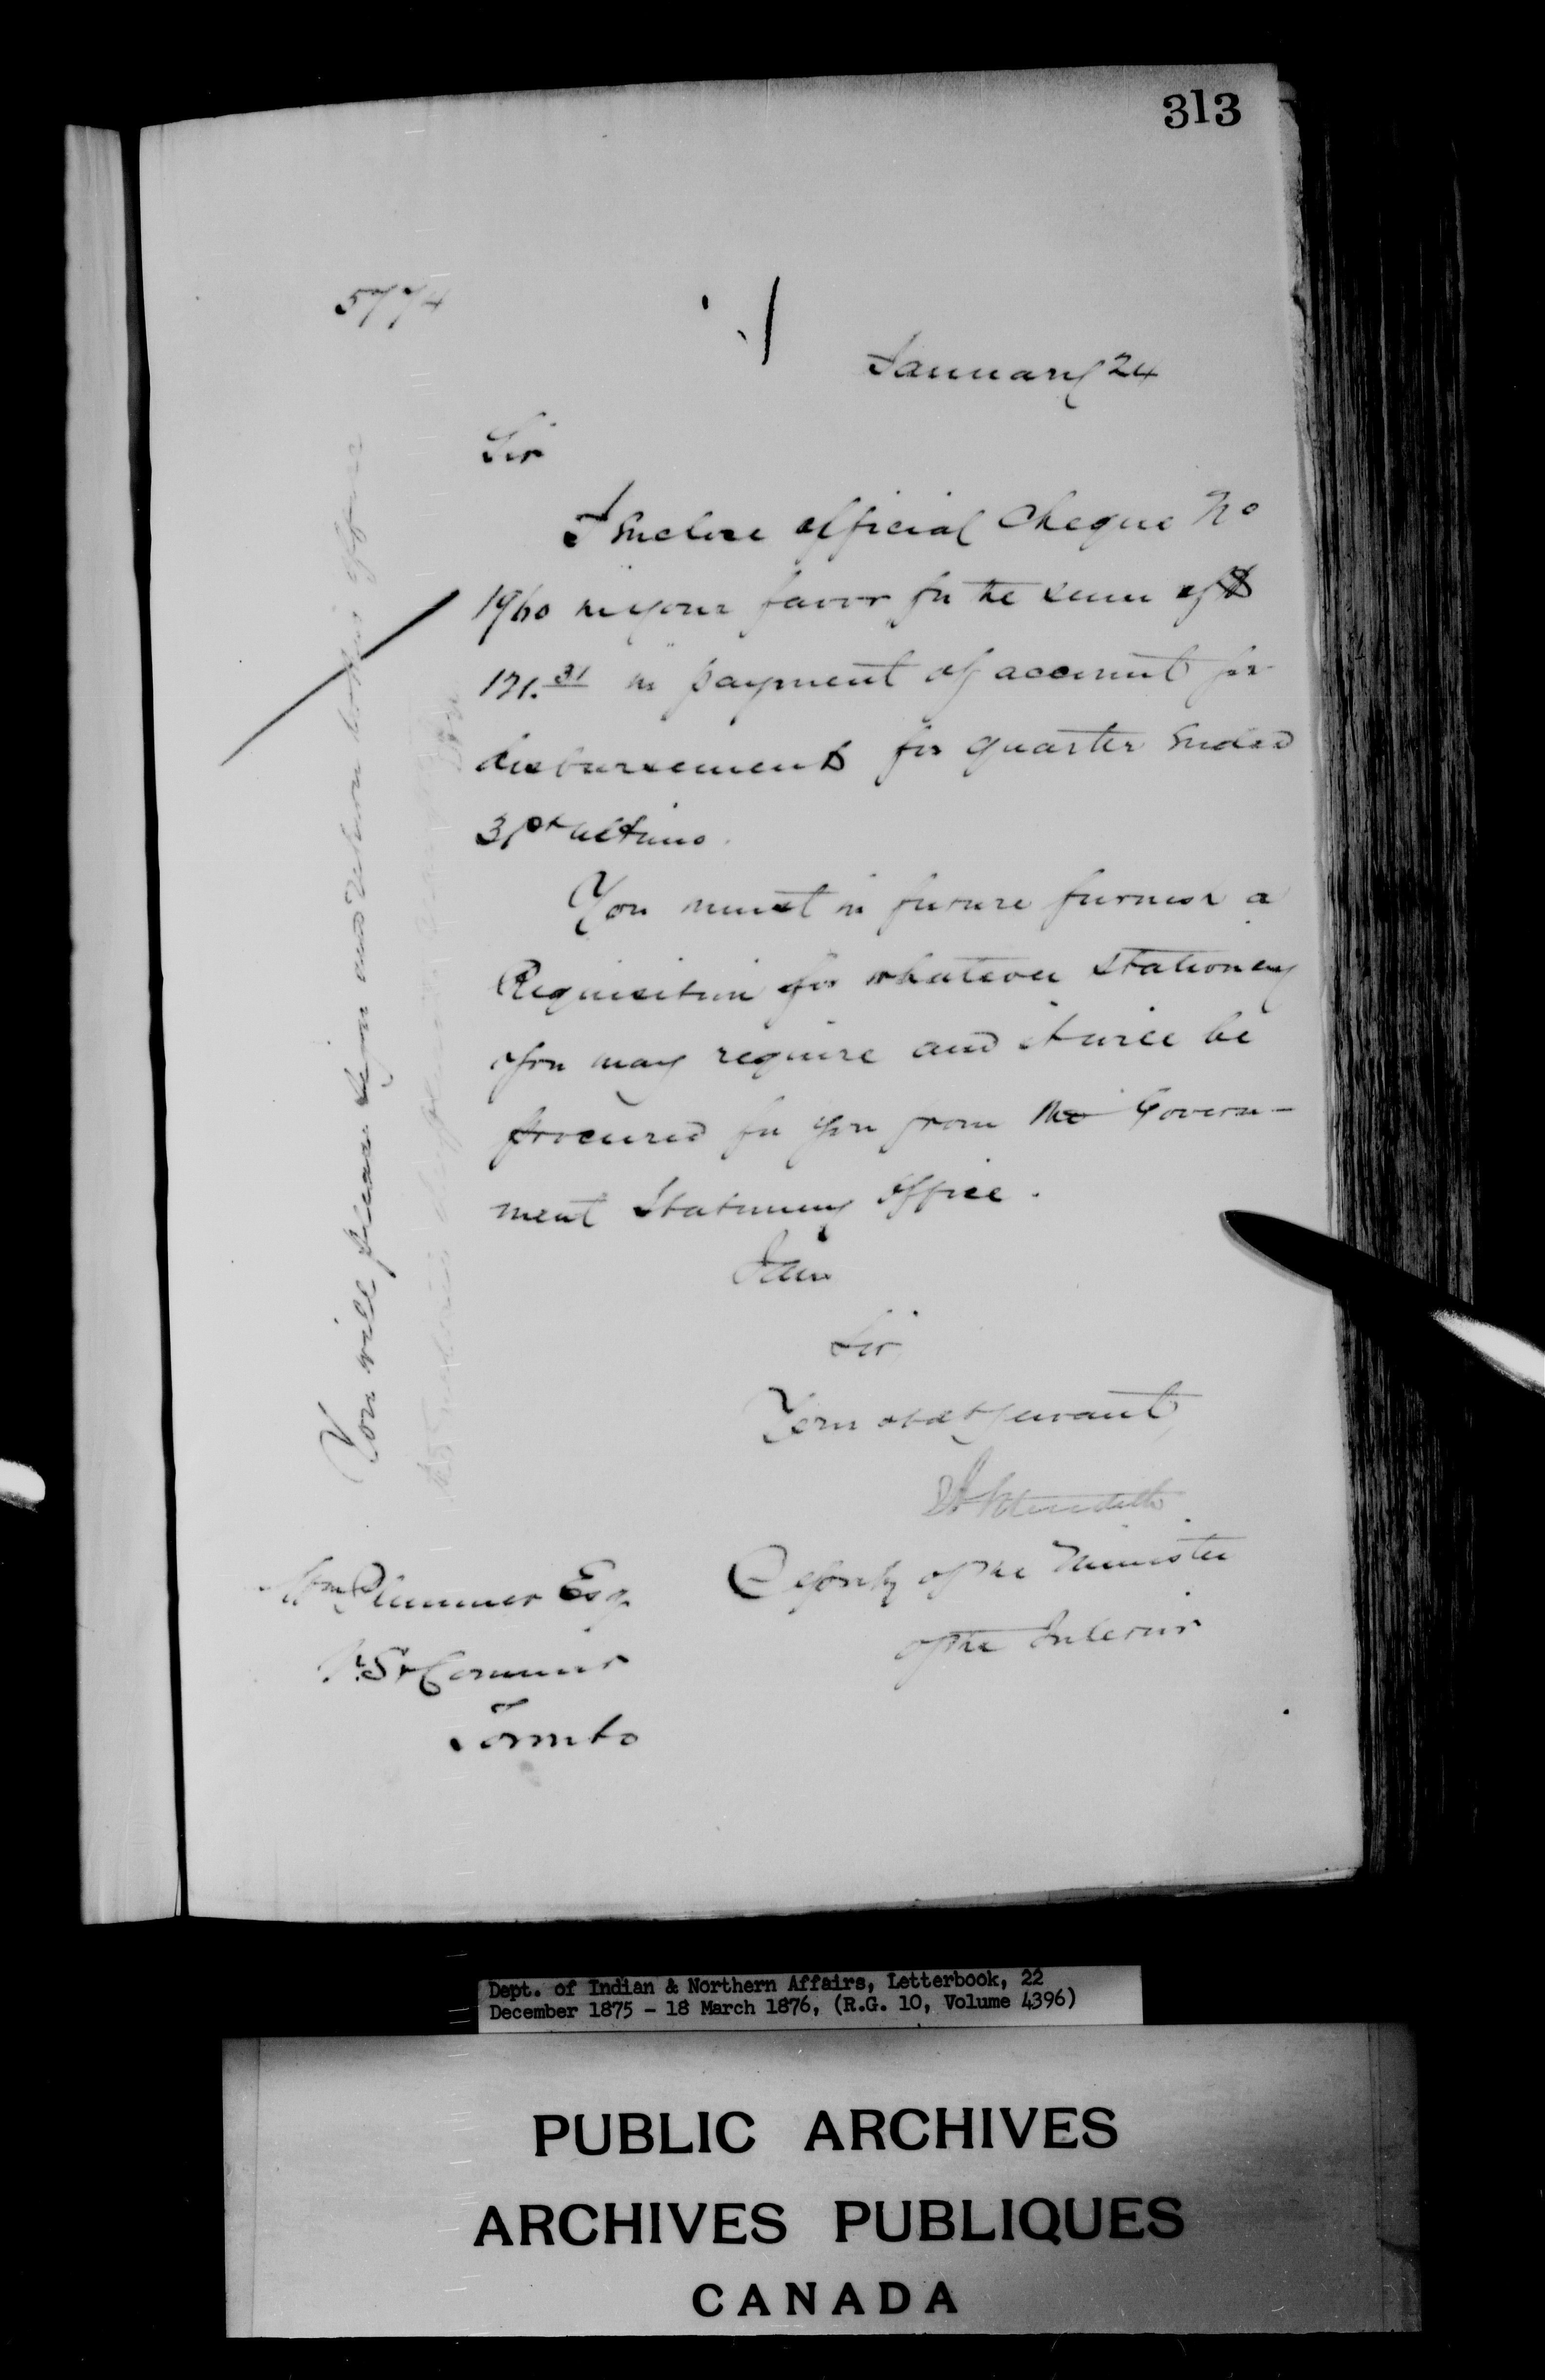 313
5774
January 24
Sir
I Enclose official Cheque No
1960 in your favor for the sum of $
171.31 in payment of account for
disbursements for quarter Ended
31st ultimo.
You must in future furnish a
Requisition for whatever Stationery
you may require and it will be
procured for you from the Govern-
ment Stationery Office.
I am
Sir
Your obdt servant,
Meredith
Deputy of the Minister
of the Interior
Wm Plummer Esq
Toronto
You will please sign and return to this office
Dept. of Indian & Northern Affairs, Letterbook, 22
December 1875 - 18 March 1876, (R.G. 10, Volume 4396)
PUBLIC ARCHIVES
ARCHIVES PUBLIQUES
CANADA